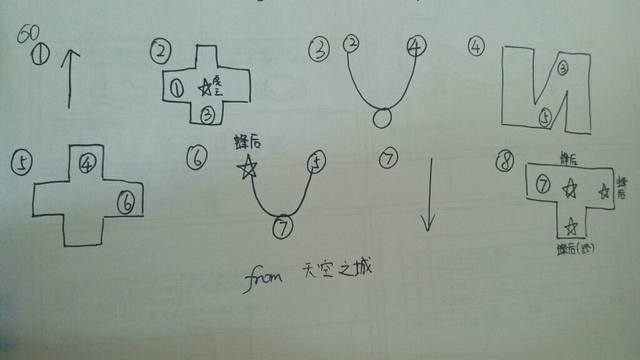 60
① ② ③ ② ④ ④
① ③ ③ ⑤
⑤ ④ ⑥ ⑥ 蜂后 ⑤ ⑦ ⑦ ⑧ 蜂后
⑦ 蜂后
蜂后(终)
from 天空之城